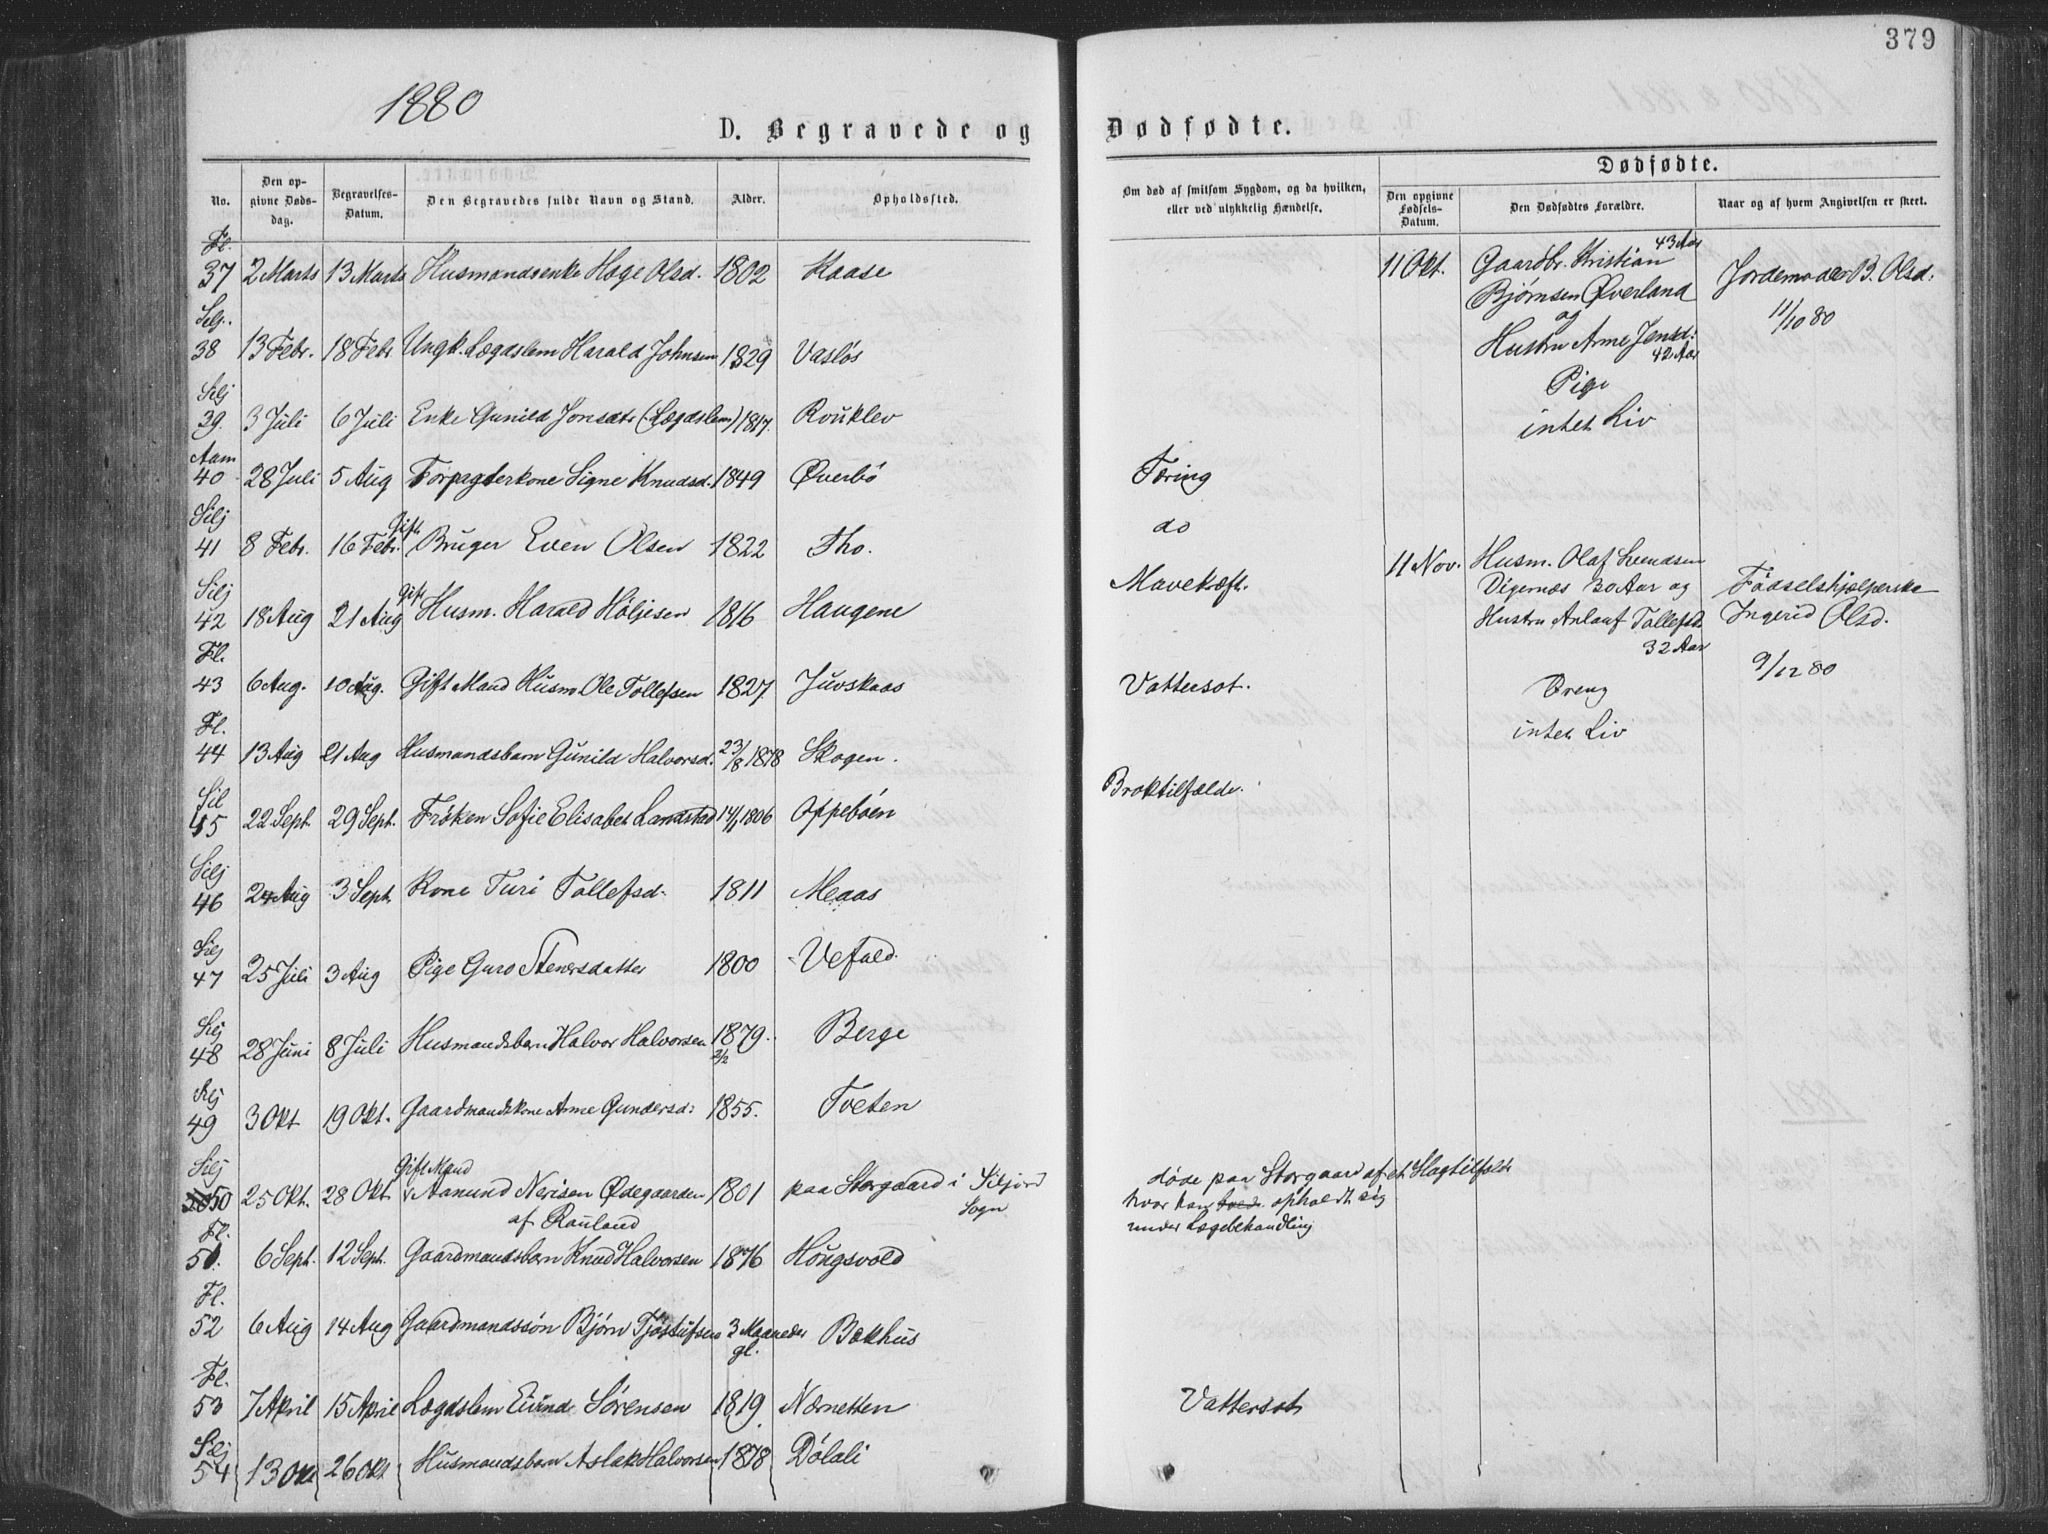 379
1880
D. Begravede og Dødfødte.
No.
Den opgivne Dødsdag.
Begravelses-Datum.
Den Begravedes fulde Navn og Stand.
Alder.
Opholdssted.
Om død af smitsom Sygdom, og da hvilken, eller ved ulykkelig Hændelse.
Dødfødte.
Den opgivne Fødsels-Datum.
Den Dødfødtes Forældre.
Naar og af hvem Angivelsen er skeet.
Fl.
37 2 Marts 13 Marts Husmandsenke Hæge Olsd. 1802 Kaase
Selj.
38 13 Febr. 18 Febr Ungk. Lægdslem Harald Johnsen 1829 Vasløs
Silj
39. 3 Juli 6 Juli Enke Gunild Jonsdtr (Lægdslem) 1817. Rouklev
Aam
40 28 Juli 5 Aug Forpagterkone Signe Knudsd. 1849 Øverbö Tæring
Silj
41 8 Febr. 16 Febr. Gift Bruger Even Olsen 1822 Tho. do
Silj
42 18 Aug 21 Aug Gift Husm. Harald Höljesen 1816 Haugene Mavekræft.
Fl.
43 6 Aug. 10 Aug. Gift Mand Husm. Ole Tollefsen 1827 Juvskaas Vattersot.
Fl.
44 13 Aug 21 Aug Husmandsbarn Gunild Halvorsd. 23/8 1878 Skogen.
Sil
45 22 Sept. 29 Sept. Frøken Sofie Elisabet Landstad 14/1 1806 Oppebøen Broktilfælde.
Silj
46 24 Aug 3 Sept. Kone Turi Tollefsd. 1811 Meaas
Silj
47 25 Juli 3 Aug Pige Guro Stenersdatter 1800 Vefald.
Silj
48 28 Juni 8 Juli Husmandsbarn Halvor Halvorsen 1879. 2/2 Berge
Silj
49 3 Okt 19 Okt. Gaardmandskone Anne Gundersd: 1855. Tveten
Silj
50 25 Okt. 28 Okt. Gift Mand Aanund Nerisen Ødegaarden 1801 paa Storgaard i Siljord
af Rauland Sogn
døde paa Storgaard af et Slagtilfælde
hvor han opholdt sig
under Lægebehandling
Fl.
51. 6 Sept. 12 Sept. Gaardmandsbarn Knud Halvorsen 1876 Hougsvold
Fl.
52 6 Aug 14 Aug Gaardmandssön Björn Tjöstufsen 3 Maaneder gl. Bækhus
Fl.
53 7 April 15 April Lægdslem Eivind Sörensen 1819 Nærnetten Vattersot
Silj
54 13 Okt 26 Okt Husmandsbarn Aslak Halvorsen 1878 Dölali
11 Okt. Gaardbr. Kristian 43 Aar
Bjørnsen Øverland
og
Hustru Anne Jensd: 42 Aar
Pige
intet Liv
Jordemoder B. Olsd.
11/10 80
11 Nov. Husm. Olaf Svendsen
Digernæs 30 Aar og
Hustru Anlaug Tollefsd.
32 Aar
Dreng
intet Liv
Fødselshjælperske
Ingerid Olsd.
9/12 80